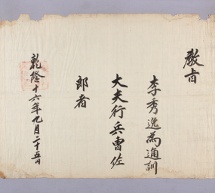 教旨
李秀逸為通訓
大夫行兵曹佐
郎者
乾隆十六年九月二十五日